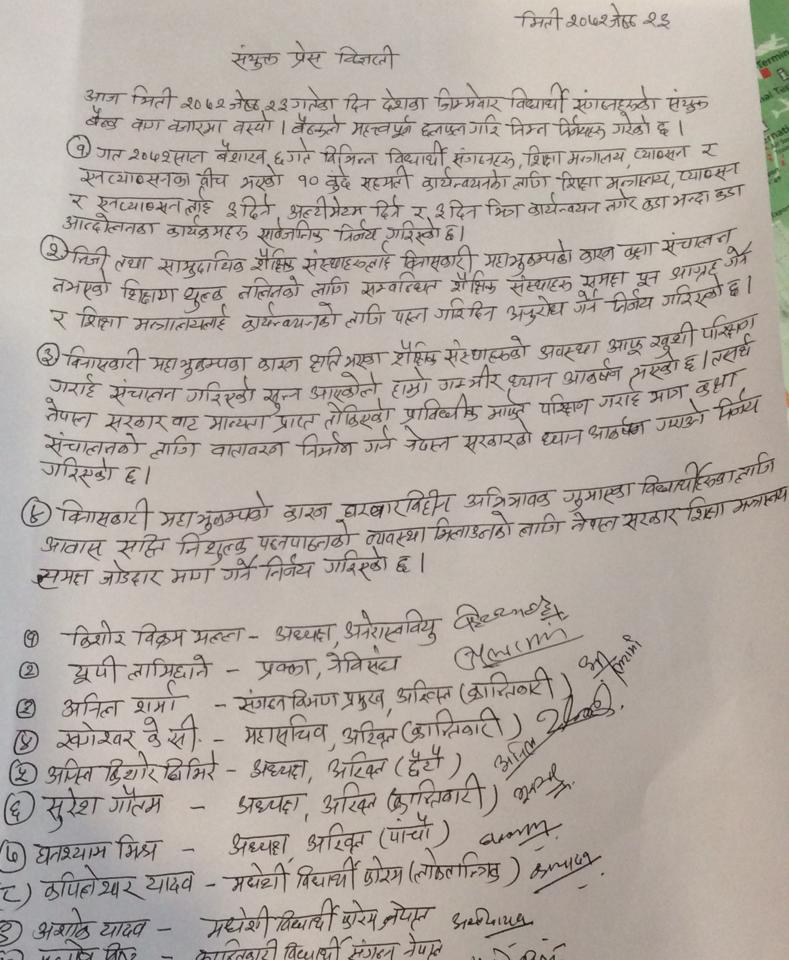 मिती २०७२ जेष्ठ २३
संयुक्त प्रेस विज्ञप्ती
आज मिती २०७२ जेष्ठ २३ गतेका दिन देशका जिम्मेवार विद्यार्थी संगठनहरुको संयुक्त
बैठक बाग बजारमा बस्यो । बैठकले महत्वपूर्ण छलफल गरि निम्न निर्णयहरु गरेको छ ।
१ गत २०७२ साल बैशाख ६ गते विभिन्न विद्यार्थी संगठनहरु, शिक्षा मन्त्रालय, प्याब्सन र
एनप्याब्सनका बीच भएको १० बुंदे सहमती कार्यन्वयनको लागि शिक्षा मन्त्रालय, प्याब्सन
र एनप्याब्सनलाई ३ दिने अल्टीमेटम दिने र ३ दिन भित्र कार्यन्वयन नगरे कडा भन्दा कडा
आन्दोलनका कार्यक्रमहरु सार्वजनिक निर्णय गरिएको छ ।
२ निजी तथा सामुदायिक शैक्षिक संस्थाहरुलाई विनासकारी महाभुकम्पको कारन कक्षा संचालन
नभएको शिक्षण शुल्क नलिनको लागि सम्वन्धित शैक्षिक संस्थाहरु समक्ष पून आग्रह गर्ने
र शिक्षा मन्त्रालयलाई कार्यन्वयनको लागि पहल गरिदिन अनुरोध गर्ने निर्णय गरिएको छ ।
३ विनासकारी महाभुकम्पका कारन क्षति भएका शैक्षिक संस्थाहरुको अवस्था आफू खुशी परिक्षण
गराई संचालन गरिएको सुन्न आएकोले हाम्रो गम्भीर ध्यान आकर्षण भएको छ । तसर्थ
नेपाल सरकार बाट मान्यता प्राप्त तोकिएको प्राविधीक मार्फत परिक्षण गराई मात्र कक्षा
संचालनको लागि वातावरन निर्माण गर्न नेपाल सरकारको ध्यान आकर्षन गराउने निर्णय
गरिएको छ ।
४ विनासकारी महाभुकम्पको कारन घरबारविहीन अभिभावक गुमाएका विद्यार्थीहरुका लागि
आवास सहित निशुल्क पठनपाठनको व्यवस्था मिलाउनको लागि नेपाल सरकार शिक्षा मन्त्रालय
समक्ष जोडदार माग गर्ने निर्णय गरिएको छ ।
१ किशोर विक्रम मल्ल - अध्यक्ष, अनेरास्ववियु
२ यूपी लामिछाने - प्रवक्ता, नेविसंघ
३ अनिल शर्मा - संगठन विभाग प्रमुख, अखिल (क्रान्तिकारी)
४ खगेश्वर के.सी. - महासचिव, अखिल (क्रान्तिकारी)
५ किशोर घिमिरे - अध्यक्ष, अखिल (छैटौं)
६ सुरेश गौतम - अध्यक्ष, अखिल (क्रान्तिकारी)
७ घनश्याम मिश्र - अध्यक्ष, अखिल (पांचौं)
८) कपिलेश्वर यादव - मधेशी विद्यार्थी फोरम (लोकतान्त्रिक)
९) अशोक यादव - मधेशी विद्यार्थी फोरम, नेपाल
क्रान्तिकारी विद्यार्थी संगठन नेपाल